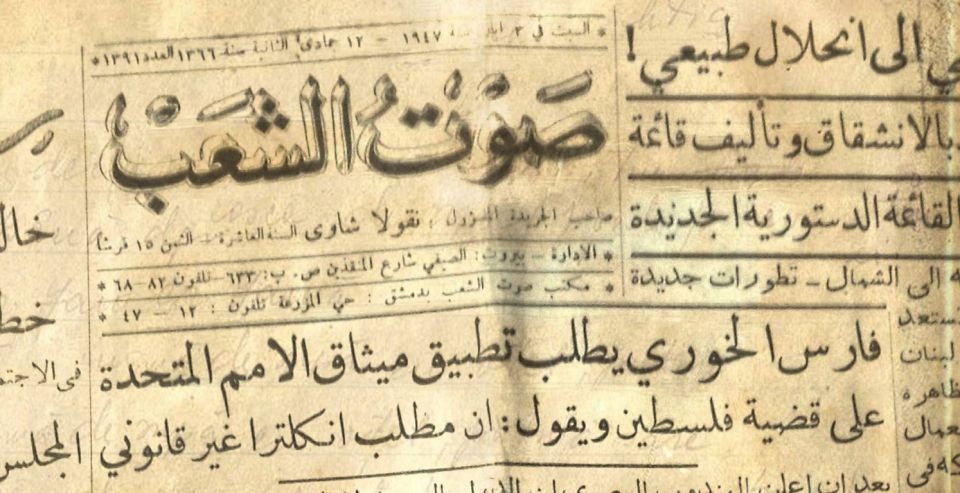 * السبت في ٣ ايار سنة ١٩٤٧ – ١٢ جمادى الثانية سنة ١٣٦٦ العدد ١٣٩١ *
صَوْتُ الشَعَبْ
صاحب الجريدة المسؤول : نقولا شاوى السنة العاشرة – الثمن ١٥ قرشاً
* الادارة – بيروت: الصيفي شارع المنقذين ص. ب: ٦٣٣ – تلفون ٨٢ – ٦٨ *
* مكتب صوت الشعب بدمشق : حي المزرعة تلفون : ١٢ – ٤٧ *
فارس الخوري يطلب تطبيق ميثاق الامم المتحدة
على قضية فلسطين ويقول: ان مطلب انكلترا غير قانوني
بعد ان اعلن
الى انحلال طبيعي !
بالانشقاق وتأليف قائمة
القائمة الدستورية الجديدة
الى الشمال – تطورات جديدة
لبنان
في
المجلس